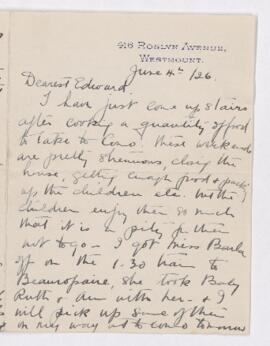 416 Roslyn Avenue,
Westmount.
June 4th/26.
Dearest Edward
I have just come up stairs
after cooking a quantity of food
to take to Como, these week ends
are pretty strenuous, closing the
house, getting enough food & packing
up the children etc. but the
children enjoy them so much
that it is a pity for them
not to go – I got Miss
off on the 1-30 train to
Beaurepaire, she took Baby
Ruth & Ann with her – & I
will pick up some of them
on my way out to Como tomorrow